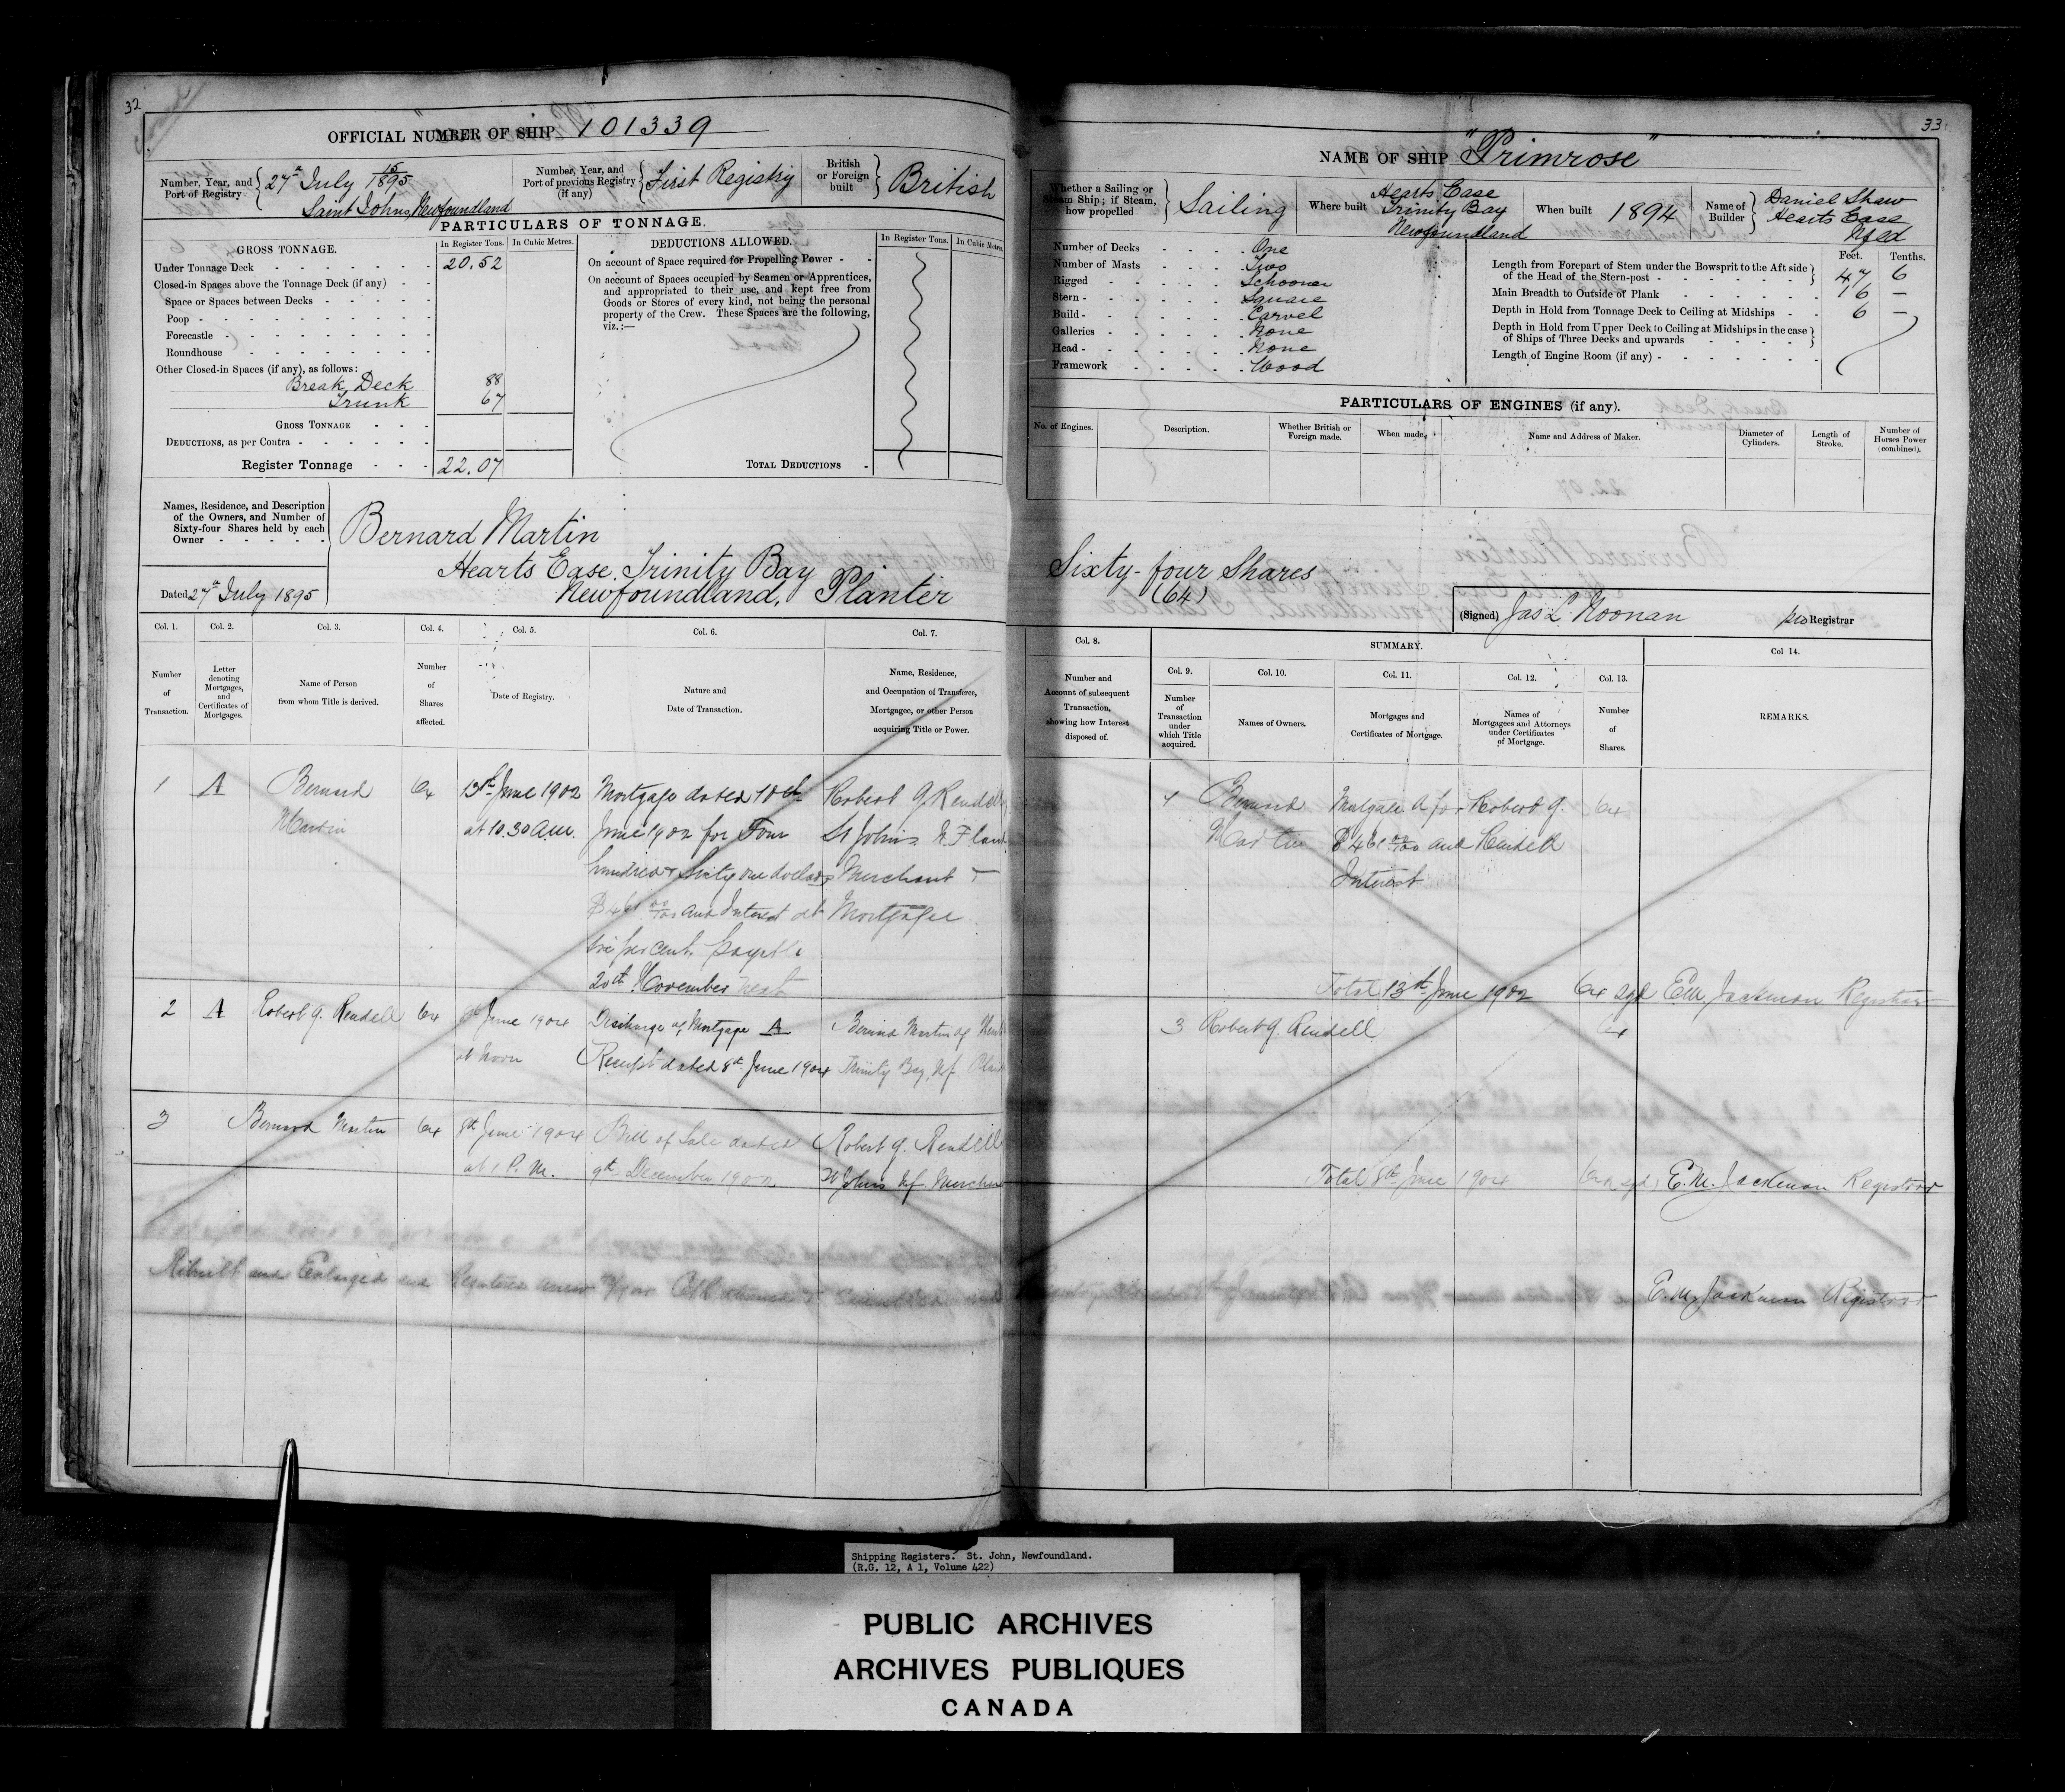 32
OFFICIAL NUMBER OF SHIP 101339
Number, Year, and Port of Registry
27th July 15/1895
Saint Johns, Newfoundland
Number, Year, and Port of previous Registry (if any)
First Registry
British or Foreign built
British
PARTICULARS OF TONNAGE.
GROSS TONNAGE.
In Register Tons.
In Cubic Metres.
Under Tonnage Deck 20.52
Closed-in Spaces above the Tonnage Deck (if any)
Space or Spaces between Decks
Poop
Forecastle
Roundhouse
Other Closed-in Spaces (if any), as follows:
Break Deck 88
Trunk 67
GROSS TONNAGE
DEDUCTIONS, as per Contra
Register Tonnage 22.07
DEDUCTIONS ALLOWED.
In Register Tons.
In Cubic Metres
On account of Space required for Propelling Power
On account of Spaces occupied by Seamen or Apprentices,
and appropriated to their use, and kept free from
Goods or Stores of every kind, not being the personal
property of the Crew. These Spaces are the following,
viz.:—
TOTAL DEDUCTIONS
Names, Residence, and Description
of the Owners, and Number of
Sixty-four Shares held by each
Owner
Dated 27th July 1895
Bernard Martin
Hearts Ease, Trinity Bay
Newfoundland, Planter
Col. 1. Col. 2. Col. 3. Col. 4. Col. 5. Col. 6. Col. 7.
Number of Transaction.
Letter denoting Mortgages, and Certificates of Mortgages.
Name of Person from whom Title is derived.
Number of Shares affected.
Date of Registry.
Nature and Date of Transaction.
Name, Residence, and Occupation of Transferee, Mortgagee, or other Person acquiring Title or Power.
1 A Bernard 64 13th June 1902 Mortgage dated 10th Robert G Rendell
Martin at 10.30 A.M. June 1902 for Four St Johns N.F land
hundred & Sixty one dollars Merchant
$461 00/100 and Interest at Mortgagee
six per cent. payable
20th November next
2 A Robert G. Rendell 64 8th June 1904 Discharge of Mortgage A Bernard Martin of
at Noon Receipt dated 8th June 1904 Trinity Bay, Nf.
3 Bernard Martin 64 8th June 1904 Bill of Sale dated Robert G. Rendell
at 1 P.M. 9th December 1902 St Johns Nf. Merchant
Rebuilt and Enlarged and Registered anew
33
NAME OF SHIP "Primrose"
Whether a Sailing or Steam Ship; if Steam, how propelled
Sailing
Where built
Hearts Ease
Trinity Bay
Newfoundland
When built 1894
Name of Builder
Daniel Shaw
Hearts Ease
Nfld
Number of Decks One
Number of Masts Two
Rigged Schooner
Stern Square
Build Carvel
Galleries None
Head None
Framework Wood
Feet. Tenths.
Length from Forepart of Stem under the Bowsprit to the Aft side
of the Head of the Stern-post 47 6
Main Breadth to Outside of Plank 16 —
Depth in Hold from Tonnage Deck to Ceiling at Midships 6 —
Depth in Hold from Upper Deck to Ceiling at Midships in the case
of Ships of Three Decks and upwards
Length of Engine Room (if any)
PARTICULARS OF ENGINES (if any).
No. of Engines.
Description.
Whether British or Foreign made.
When made.
Name and Address of Maker.
Diameter of Cylinders.
Length of Stroke.
Number of Horses Power (combined).
Sixty-four Shares
(64)
(Signed) Jas L. Noonan pro Registrar
Col. 8. SUMMARY. Col 14.
Col. 9. Col. 10. Col. 11. Col. 12. Col. 13.
Number and Account of subsequent Transaction, showing how Interest disposed of.
Number of Transaction under which Title acquired.
Names of Owners.
Mortgages and Certificates of Mortgage.
Names of Mortgagees and Attorneys under Certificates of Mortgage.
Number of Shares.
REMARKS.
Bernard Mortgage A for Robert G. 64
Martin $461 00/100 and Rendell
Interest
Total 13th June 1902 64 sgd E.M. Jackman Registrar
3 Robert G. Rendell 64
Total 8th June 1904 64 sgd E.M. Jackman Registrar
E.M. Jackman Registrar
Shipping Registers. St. John, Newfoundland.
(R.G. 12, A 1, Volume 422)
PUBLIC ARCHIVES
ARCHIVES PUBLIQUES
CANADA